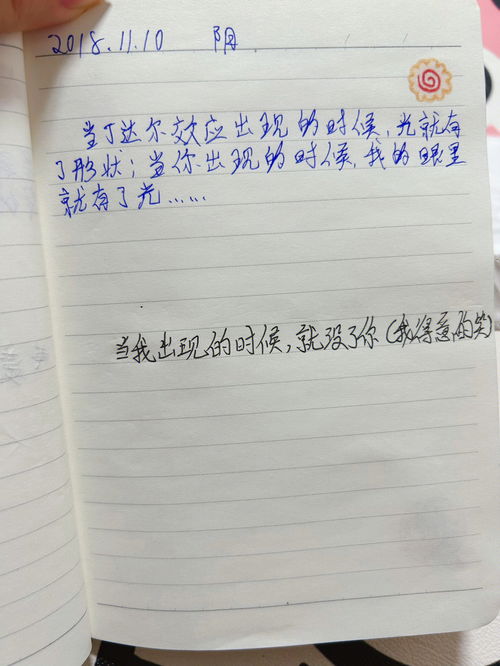 2018.11.10 阴
当丁达尔效应出现的时候,光就有
了形状;当你出现的时候,我的眼里
就有了光……
当我出现的时候,就没了你(我得意的笑)